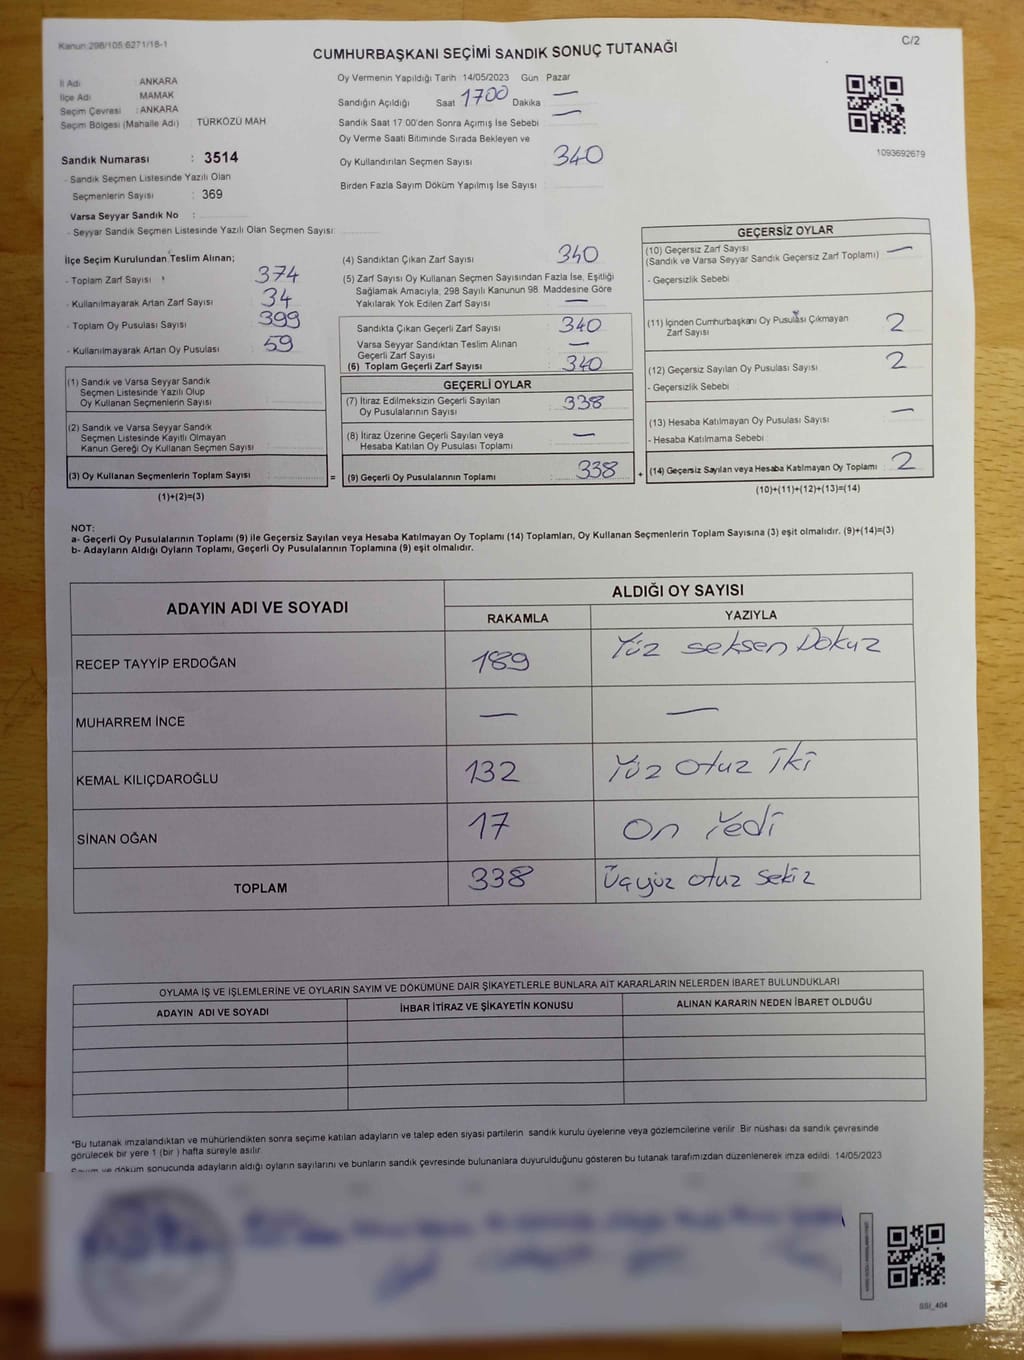 Kanun:298/105:6271/18-1
C/2
CUMHURBAŞKANI SEÇİMİ SANDIK SONUÇ TUTANAĞI
İl Adı : ANKARA
İlçe Adı : MAMAK
Seçim Çevresi : ANKARA
Seçim Bölgesi (Mahalle Adı) : TÜRKÖZÜ MAH
Oy Vermenin Yapıldığı Tarih 14/05/2023 Gün : Pazar
Sandığın Açıldığı Saat 1700 Dakika —
Sandık Saat 17:00'den Sonra Açımış İse Sebebi —
Oy Verme Saati Bitiminde Sırada Bekleyen ve
Oy Kullandırılan Seçmen Sayısı 340
Birden Fazla Sayım Döküm Yapılmış İse Sayısı
1093692679
Sandık Numarası : 3514
- Sandık Seçmen Listesinde Yazılı Olan
Seçmenlerin Sayısı : 369
Varsa Seyyar Sandık No :
- Seyyar Sandık Seçmen Listesinde Yazılı Olan Seçmen Sayısı:
İlçe Seçim Kurulundan Teslim Alınan;
- Toplam Zarf Sayısı : 374
- Kullanılmayarak Artan Zarf Sayısı : 34
- Toplam Oy Pusulası Sayısı : 399
- Kullanılmayarak Artan Oy Pusulası : 59
(1) Sandık ve Varsa Seyyar Sandık
Seçmen Listesinde Yazılı Olup
Oy Kullanan Seçmenlerin Sayısı :
(2) Sandık ve Varsa Seyyar Sandık
Seçmen Listesinde Kayıtlı Olmayan
Kanun Gereği Oy Kullanan Seçmen Sayısı :
(3) Oy Kullanan Seçmenlerin Toplam Sayısı : =
(1)+(2)=(3)
(4) Sandıktan Çıkan Zarf Sayısı : 340
(5) Zarf Sayısı Oy Kullanan Seçmen Sayısından Fazla İse, Eşitliği
Sağlamak Amacıyla, 298 Sayılı Kanunun 98. Maddesine Göre
Yakılarak Yok Edilen Zarf Sayısı : —
Sandıkta Çıkan Geçerli Zarf Sayısı : 340
Varsa Seyyar Sandıktan Teslim Alınan
Geçerli Zarf Sayısı : —
(6) Toplam Geçerli Zarf Sayısı : 340
GEÇERLİ OYLAR
(7) İtiraz Edilmeksizin Geçerli Sayılan
Oy Pusulalarının Sayısı : 338
(8) İtiraz Üzerine Geçerli Sayılan veya
Hesaba Katılan Oy Pusulası Toplamı : —
(9) Geçerli Oy Pusulalarının Toplamı : 338 +
GEÇERSİZ OYLAR
(10) Geçersiz Zarf Sayısı : —
(Sandık ve Varsa Seyyar Sandık Geçersiz Zarf Toplamı)
- Geçersizlik Sebebi :
(11) İçinden Cumhurbaşkanı Oy Pusulası Çıkmayan
Zarf Sayısı : 2
(12) Geçersiz Sayılan Oy Pusulası Sayısı : 2
- Geçersizlik Sebebi :
(13) Hesaba Katılmayan Oy Pusulası Sayısı : —
- Hesaba Katılmama Sebebi :
(14) Geçersiz Sayılan veya Hesaba Katılmayan Oy Toplamı : 2
(10)+(11)+(12)+(13)=(14)
NOT:
a- Geçerli Oy Pusulalarının Toplamı (9) ile Geçersiz Sayılan veya Hesaba Katılmayan Oy Toplamı (14) Toplamları, Oy Kullanan Seçmenlerin Toplam Sayısına (3) eşit olmalıdır. (9)+(14)=(3)
b- Adayların Aldığı Oyların Toplamı, Geçerli Oy Pusulalarının Toplamına (9) eşit olmalıdır.
ADAYIN ADI VE SOYADI
ALDIĞI OY SAYISI
RAKAMLA YAZIYLA
RECEP TAYYİP ERDOĞAN 189 Yüz seksen Dokuz
MUHARREM İNCE — —
KEMAL KILIÇDAROĞLU 132 Yüz otuz iki
SİNAN OĞAN 17 On Yedi
TOPLAM 338 Üçyüz otuz sekiz
OYLAMA İŞ VE İŞLEMLERİNE VE OYLARIN SAYIM VE DÖKÜMÜNE DAİR ŞİKAYETLERLE BUNLARA AİT KARARLARIN NELERDEN İBARET BULUNDUKLARI
ADAYIN ADI VE SOYADI İHBAR İTİRAZ VE ŞİKAYETİN KONUSU ALINAN KARARIN NEDEN İBARET OLDUĞU
*Bu tutanak imzalandıktan ve mühürlendikten sonra seçime katılan adayların ve talep eden siyasi partilerin sandık kurulu üyelerine veya gözlemcilerine verilir. Bir nüshası da sandık çevresinde
görülecek bir yere 1 (bir ) hafta süreyle asılır.
Sayım ve döküm sonucunda adayların aldığı oyların sayılarını ve bunların sandık çevresinde bulunanlara duyurulduğunu gösteren bu tutanak tarafımızdan düzenlenerek imza edildi. 14/05/2023
SSI_404